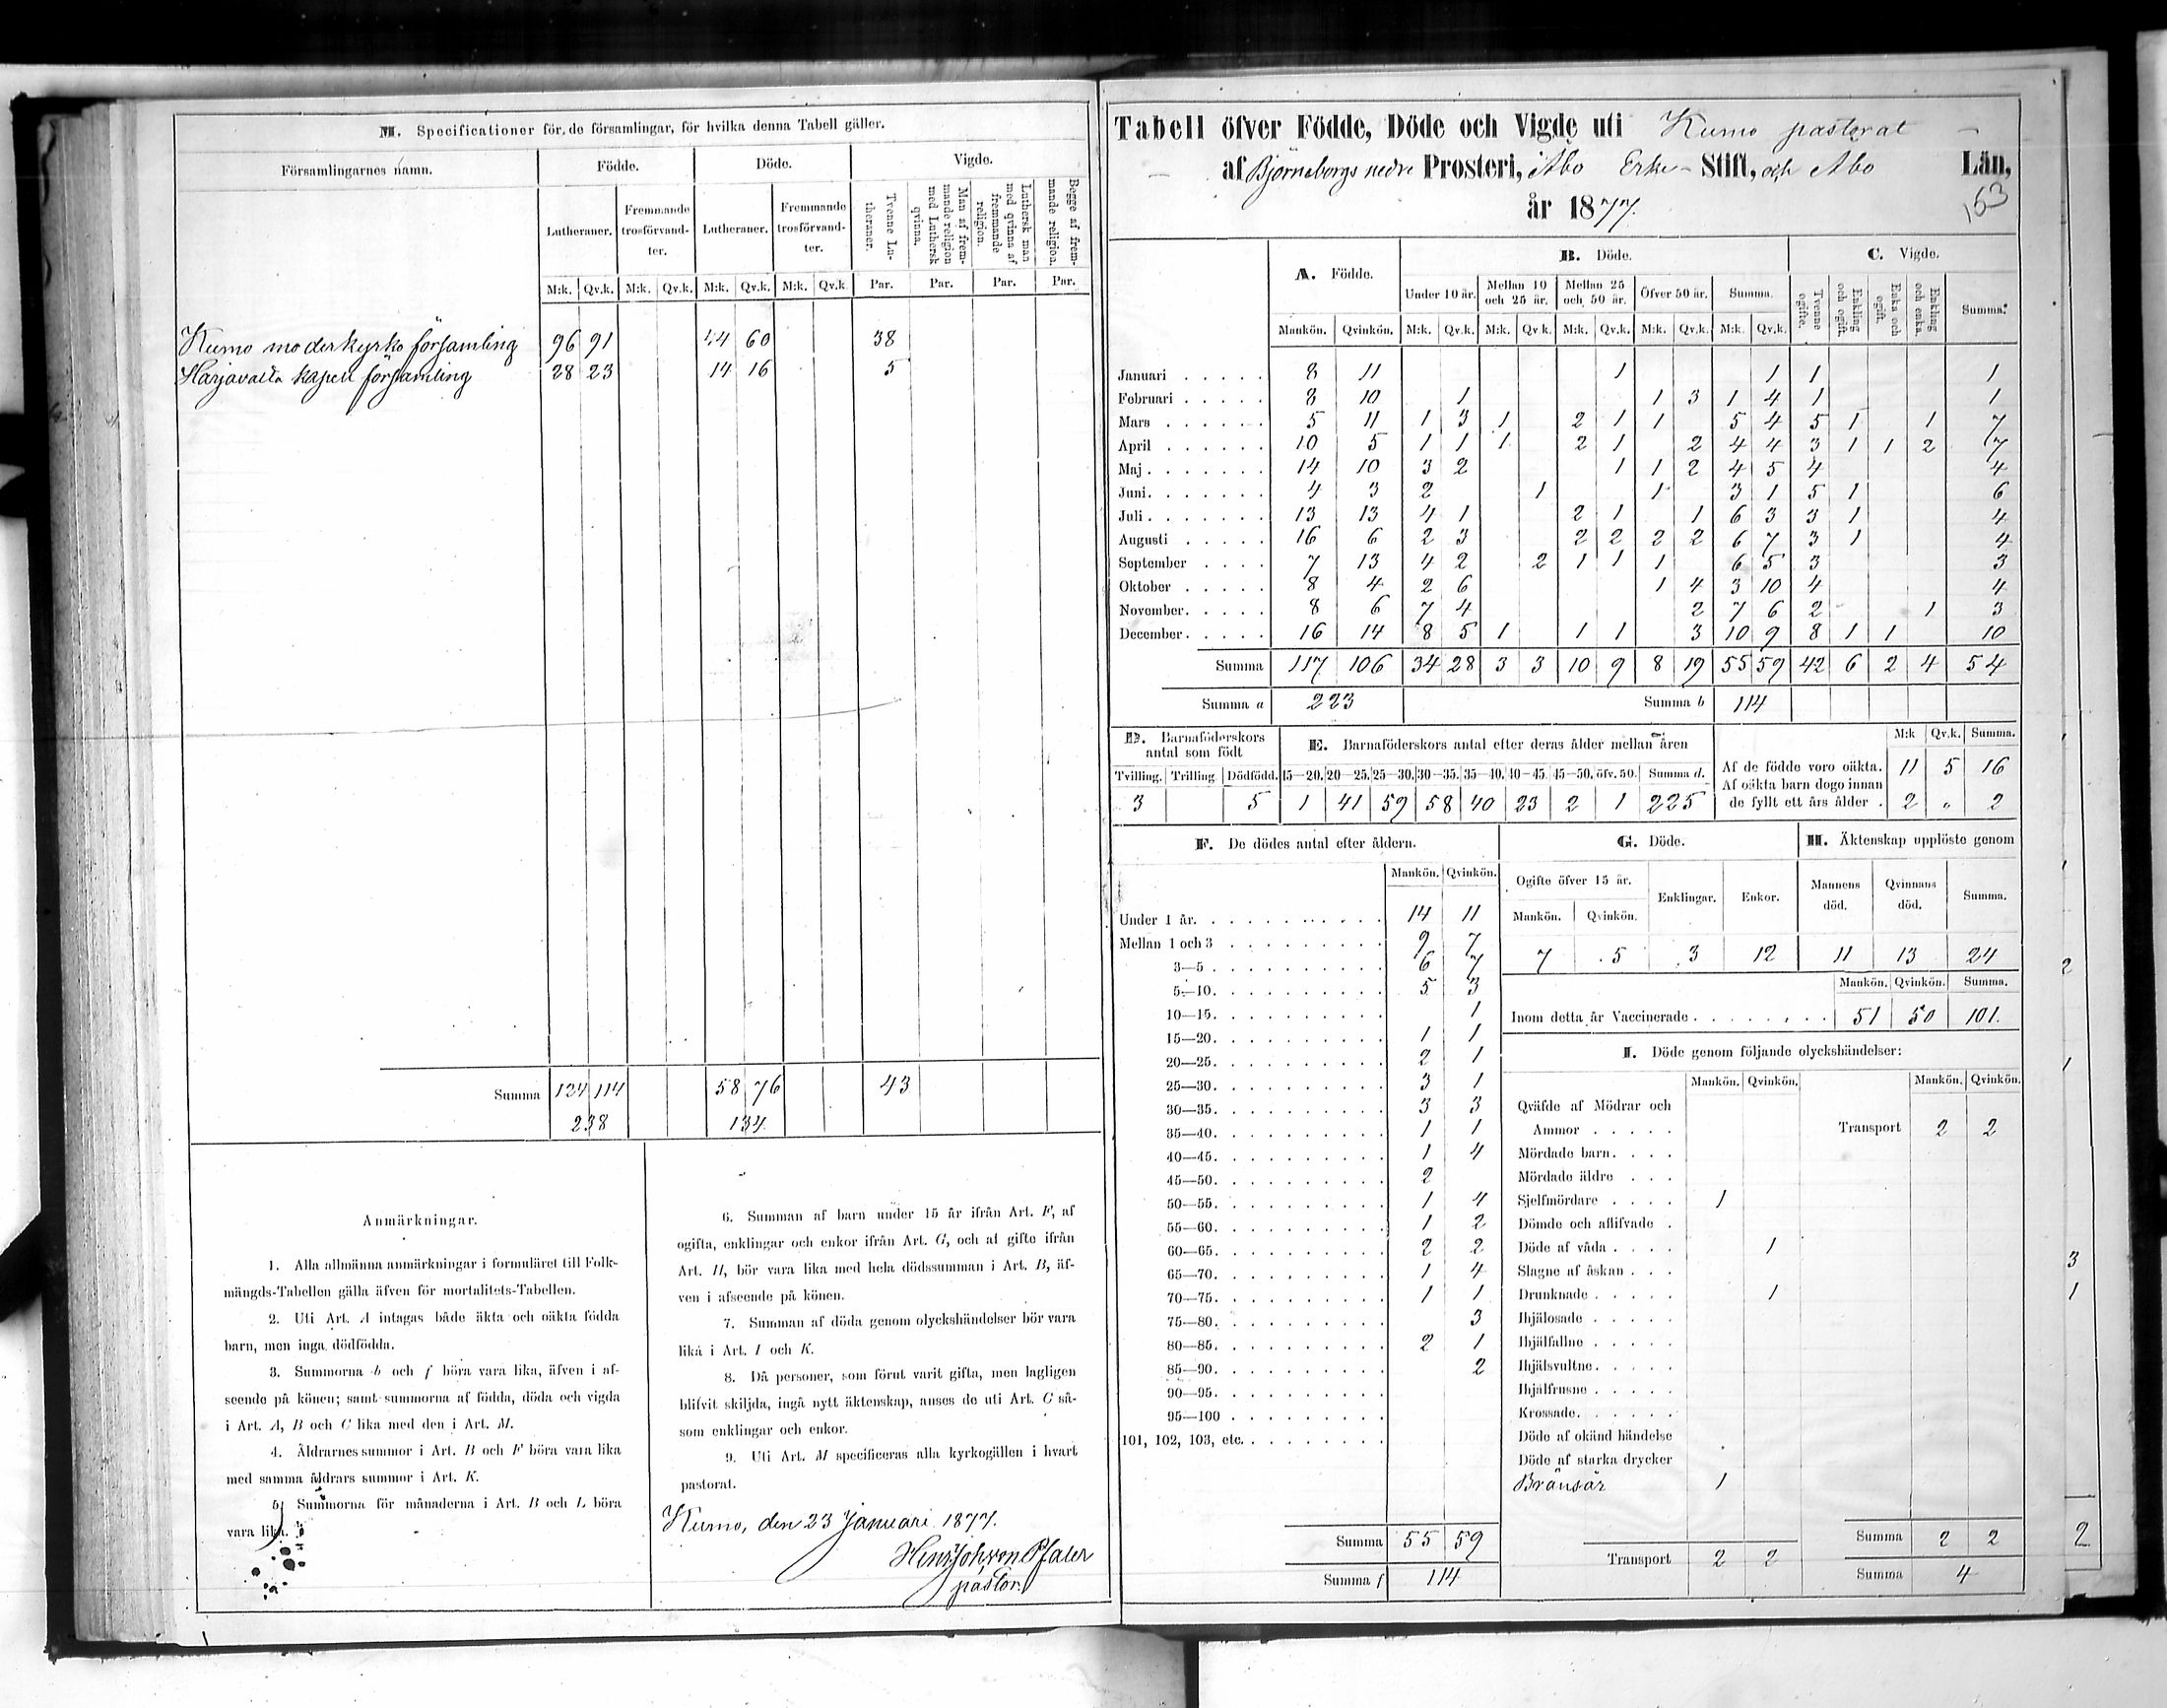 M. Specificationer för de församlingar, för hvilka denna Tabell gäller.
Församlingarnes namn. Födde. Döde. Vigde.
Lutheraner. Fremmande trosförvandter. Lutheraner. Fremmande trosförvandter. Tvenne Lutheraner. Man af fremmande religion med Luthersk qvinna. Luthersk man med qvinna af fremmande religion. Begge af fremmande religion.
M:k. Qv.k. M:k. Qv.k. M:k. Qv.k. M:k. Qv.k. Par. Par. Par. Par.
Kumo moderkyrko församling 96 91 44 60 38
Harjavalta kapell församling 28 23 14 16 5
Summa 124 114 58 76 43
238 134
Anmärkningar.
1. Alla allmänna anmärkningar i formuläret till Folk-
mängds-Tabellen gälla äfven för mortalitets-Tabellen.
2. Uti Art. A intagas både äkta och oäkta födda
barn, men inga dödfödda.
3. Summorna b och f böra vara lika, äfven i af-
seende på könen; samt summorna af födda, döda och vigda
i Art. A, B och C lika med den i Art. M.
4. Åldrarnes summor i Art. B och F böra vara lika
med samma åldrars summor i Art. K.
5. Summorna för månaderna i Art. B och L böra
vara lika.
6. Summan af barn under 15 år ifrån Art. F, af
ogifta, enklingar och enkor ifrån Art. G, och af gifte ifrån
Art. H, bör vara lika med hela dödssumman i Art. B, äf-
ven i afseende på könen.
7. Summan af döda genom olyckshändelser bör vara
lika i Art. I och K.
8. Då personer, som förut varit gifta, men lagligen
blifvit skiljda, ingå nytt äktenskap, anses de uti Art. C så-
som enklingar och enkor.
9. Uti Art. M specificeras alla kyrkogällen i hvart
pastorat.
Kumo, den 23 Januari 1877.
pastor.
Tabell öfver Födde, Döde och Vigde uti Kumo pastorat
af Björneborgs nedre Prosteri, Åbo Erke- Stift, och Åbo Län,
år 1877.
153
A. Födde. B. Döde. C. Vigde.
Under 10 år. Mellan 10 och 25 år. Mellan 25 och 50 år. Öfver 50 år. Summa. Tvenne ogifte. Enkling och ogift. Enka och ogift. Enkling och enka. Summa.
Mankön. Qvinkön. M:k. Qv.k. M:k. Qv.k. M:k. Qv.k. M:k. Qv.k. M:k. Qv.k.
Januari 8 11 1 1 1 1
Februari 8 10 1 1 3 1 4 1 1
Mars 5 11 1 3 1 2 1 1 5 4 5 1 1 7
April 10 5 1 1 1 2 1 2 4 4 3 1 1 2 7
Maj 14 10 3 2 1 1 2 4 5 4 4
Juni 4 3 2 1 1 3 1 5 1 6
Juli 13 13 4 1 2 1 1 6 3 3 1 4
Augusti 16 6 2 3 2 2 2 2 6 7 3 1 4
September 7 13 4 2 2 1 1 1 6 5 3 3
Oktober 8 4 2 6 1 4 3 10 4 4
November 8 6 7 4 2 7 6 2 1 3
December 16 14 8 5 1 1 1 3 10 9 8 1 1 10
Summa 117 106 34 28 3 3 10 9 8 19 55 59 42 6 2 4 54
Summa a 223 Summa b 114
D. Barnaföderskors antal som födt
Tvilling. Trilling Dödfödd.
3 5
E. Barnaföderskors antal efter deras ålder mellan åren
15—20. 20—25. 25—30. 30—35. 35—40. 40—45. 45—50. öfv. 50. Summa d.
1 41 59 58 40 23 2 1 225
M:k Qv.k. Summa.
Af de födde voro oäkta. 11 5 16
Af oäkta barn dogo innan
de fyllt ett års ålder . 2 „ 2
F. De dödes antal efter åldern.
Mankön. Qvinkön.
Under 1 år. 14 11
Mellan 1 och 3 9 7
3—5 6 7
5—10. 5 3
10—15. 1
15—20. 1 1
20—25. 2 1
25—30. 3 1
30—35. 3 3
35—40. 1 1
40—45. 1 4
45—50. 2
50—55. 1 4
55—60. 1 2
60—65. 2 2
65—70. 1 4
70—75. 1 1
75—80. 3
80—85. 2 1
85—90. 2
90—95.
95—100
101, 102, 103, etc.
Summa 55 59
Summa f 114
G. Döde.
Ogifte öfver 15 år. Enklingar. Enkor.
Mankön. Qvinkön.
7 5 3 12
H. Äktenskap upplöste genom
Mannens död. Qvinnans död. Summa.
11 13 24
Mankön. Qvinkön. Summa.
Inom detta år Vaccinerade 51 50 101.
I. Döde genom följande olyckshändelser:
Mankön. Qvinkön. Mankön. Qvinkön.
Qväfde af Mödrar och
Ammor Transport 2 2
Mördade barn.
Mördade äldre
Sjelfmördare 1
Dömde och aflifvade
Döde af våda 1
Slagne af åskan
Drunknade 1
Ihjälosade
Ihjälfallne
Ihjälsvultne
Ihjälfrusne
Krossade
Döde af okänd händelse
Döde af starka drycker
Bränsår 1
Transport 2 2
Summa 2 2
Summa 4